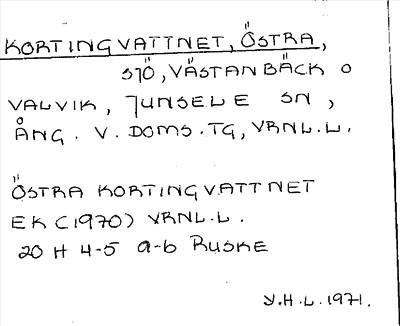 KORTINGVATTNET, ÖSTRA,
SJÖ, VÄSTANBÄCK O
VALVIK, JUNSELE SN,
ÅNG. V. DOMS. TG, VRNL.L.
ÖSTRA KORTINGVATTNET
EK (1970) VRNL.L.
20 H 4-5 a-b RUSKE
Y.H.L. 1971.